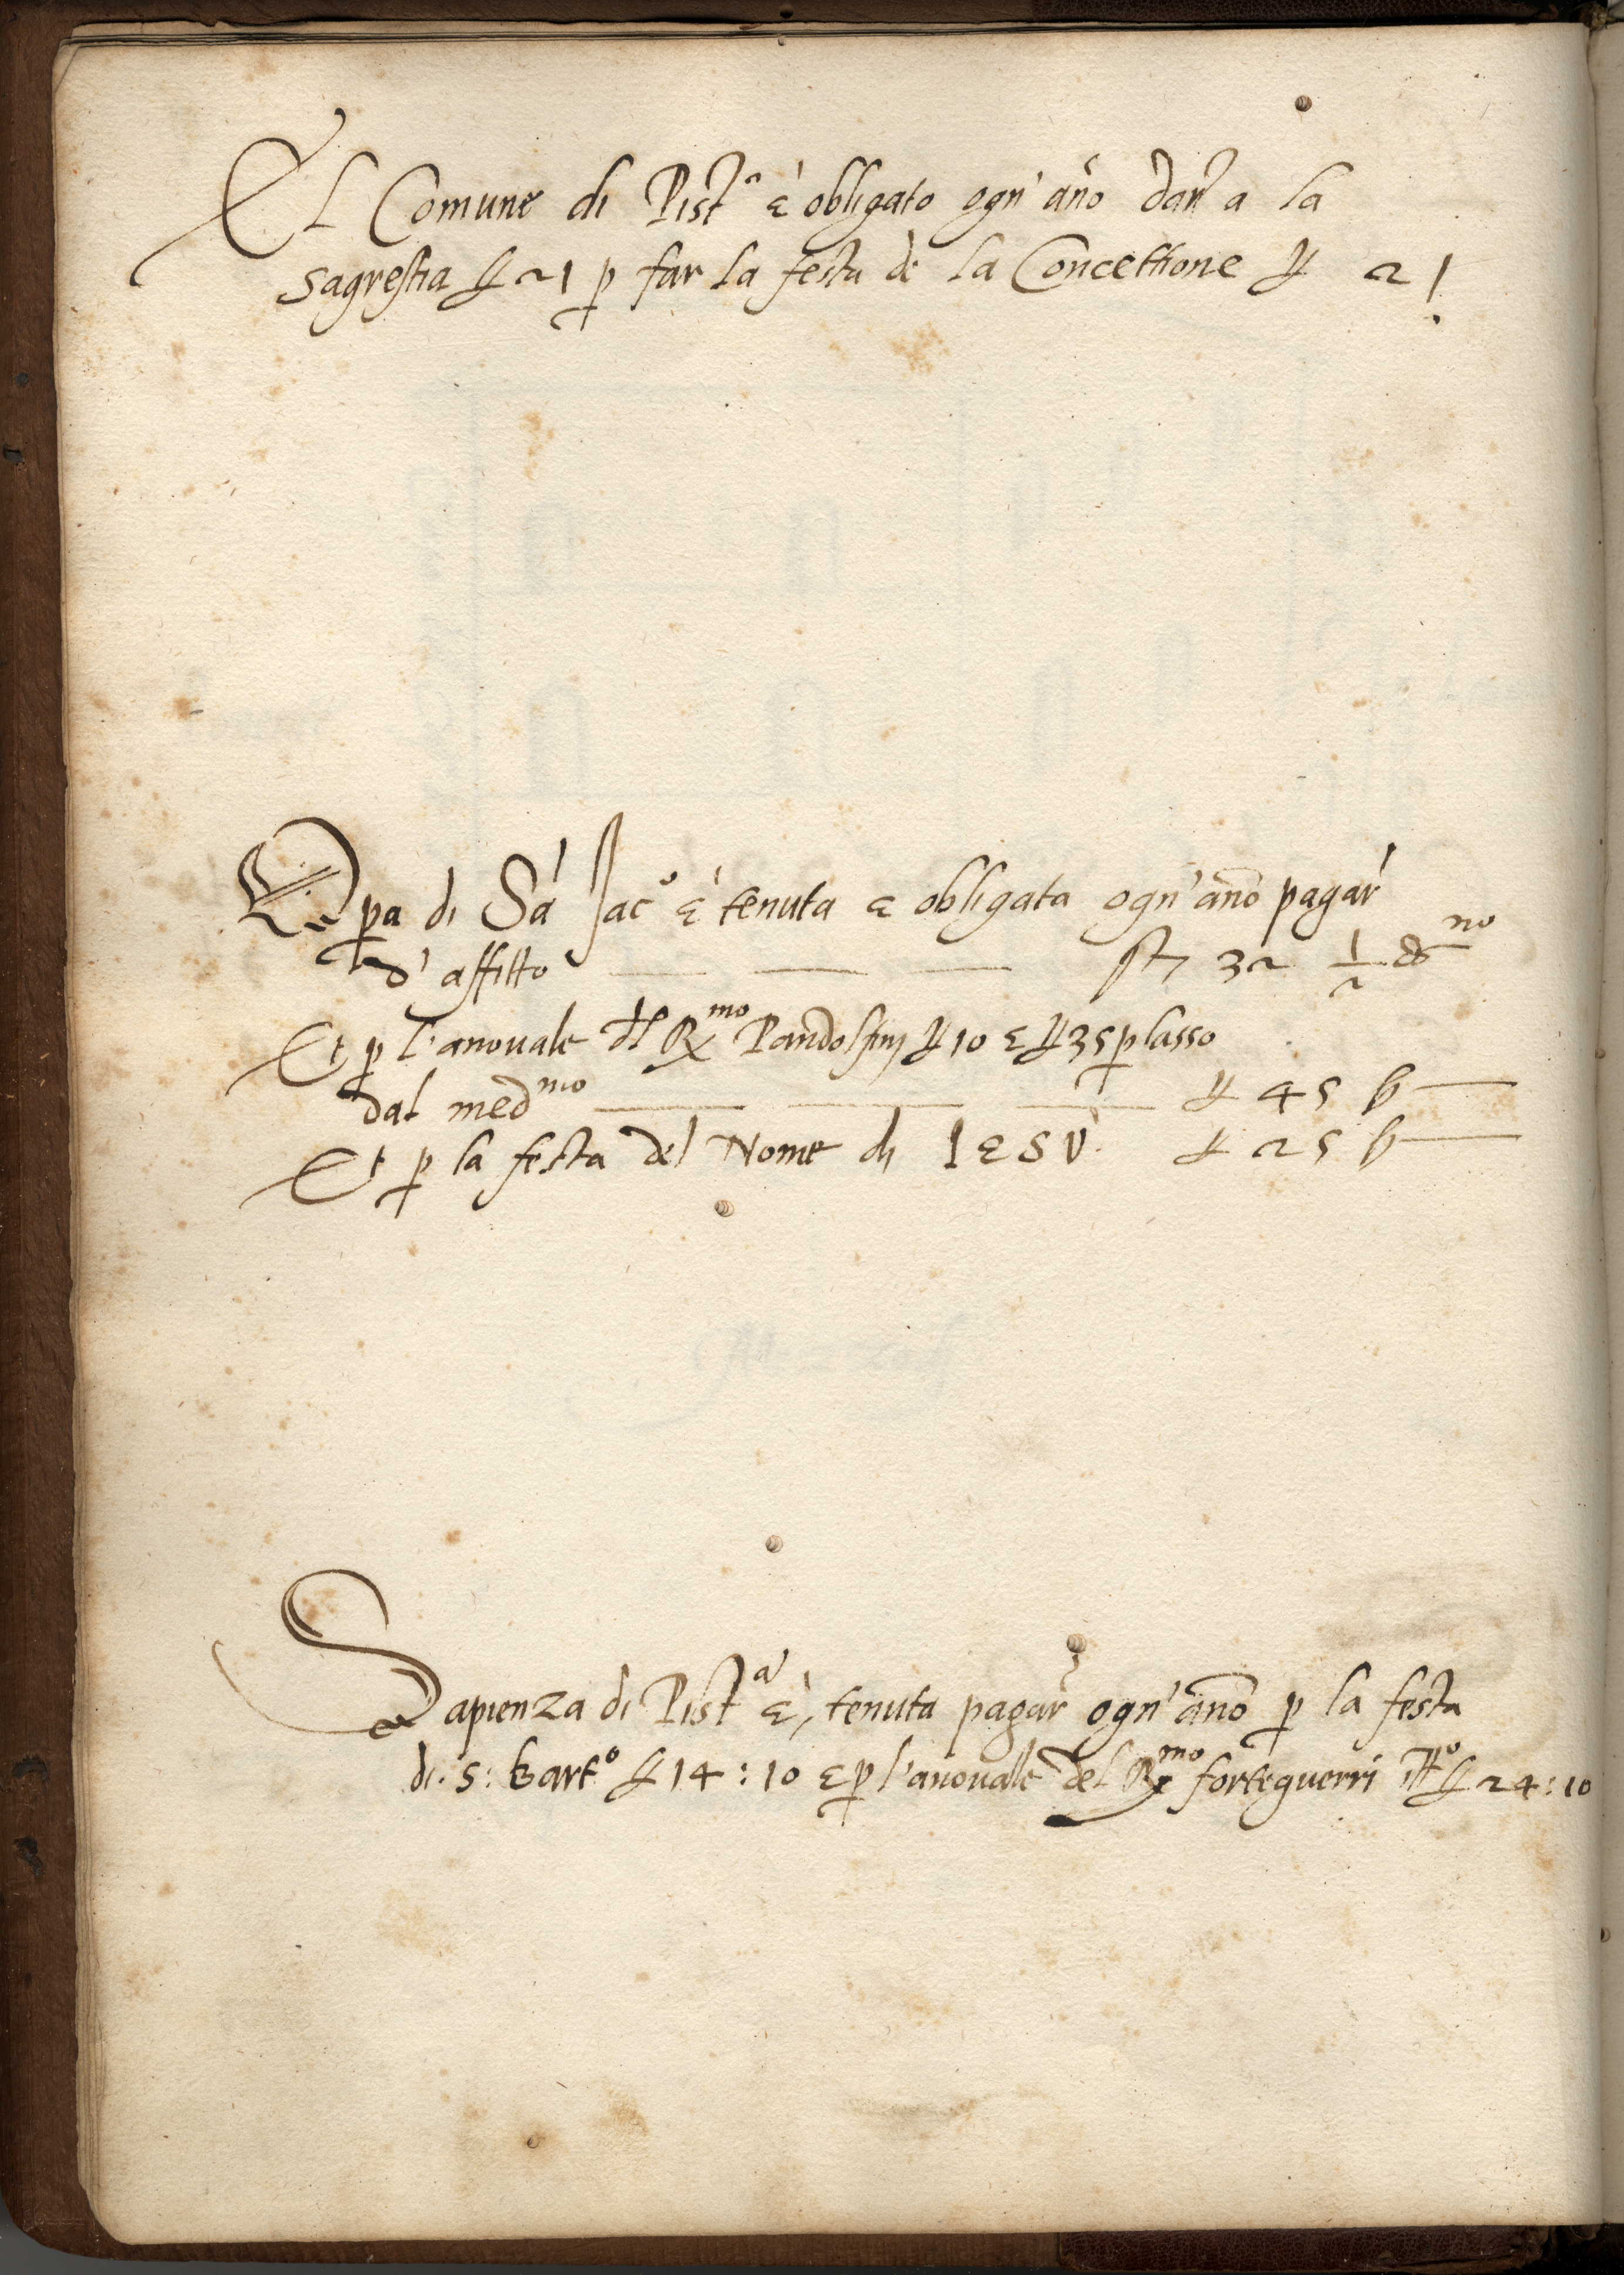 El Comune di Pist.ª è obligato ogn'año dare a la
sagrestia ₤ 21 p far la festa de la Concettione ₤ 21
Opa di Sā Jac.º è tenuta e obligata ogn'año pagar
d'affitto 32 1/2 g^no
Et p l'anovale del R^mo Pandolfinj ₤ 10 e ₤ 35 p lasso
dal med^mo ₤ 45 ß —
Et p la festa del Nome di IESV. ₤ 25 ß —
Sapienza di Pist^a è, tenuta pagar ogn'año p la festa
di. S: bart.º ₤ 14:10 e p l'anovale del R^mo forteguerri ₤ 24:10